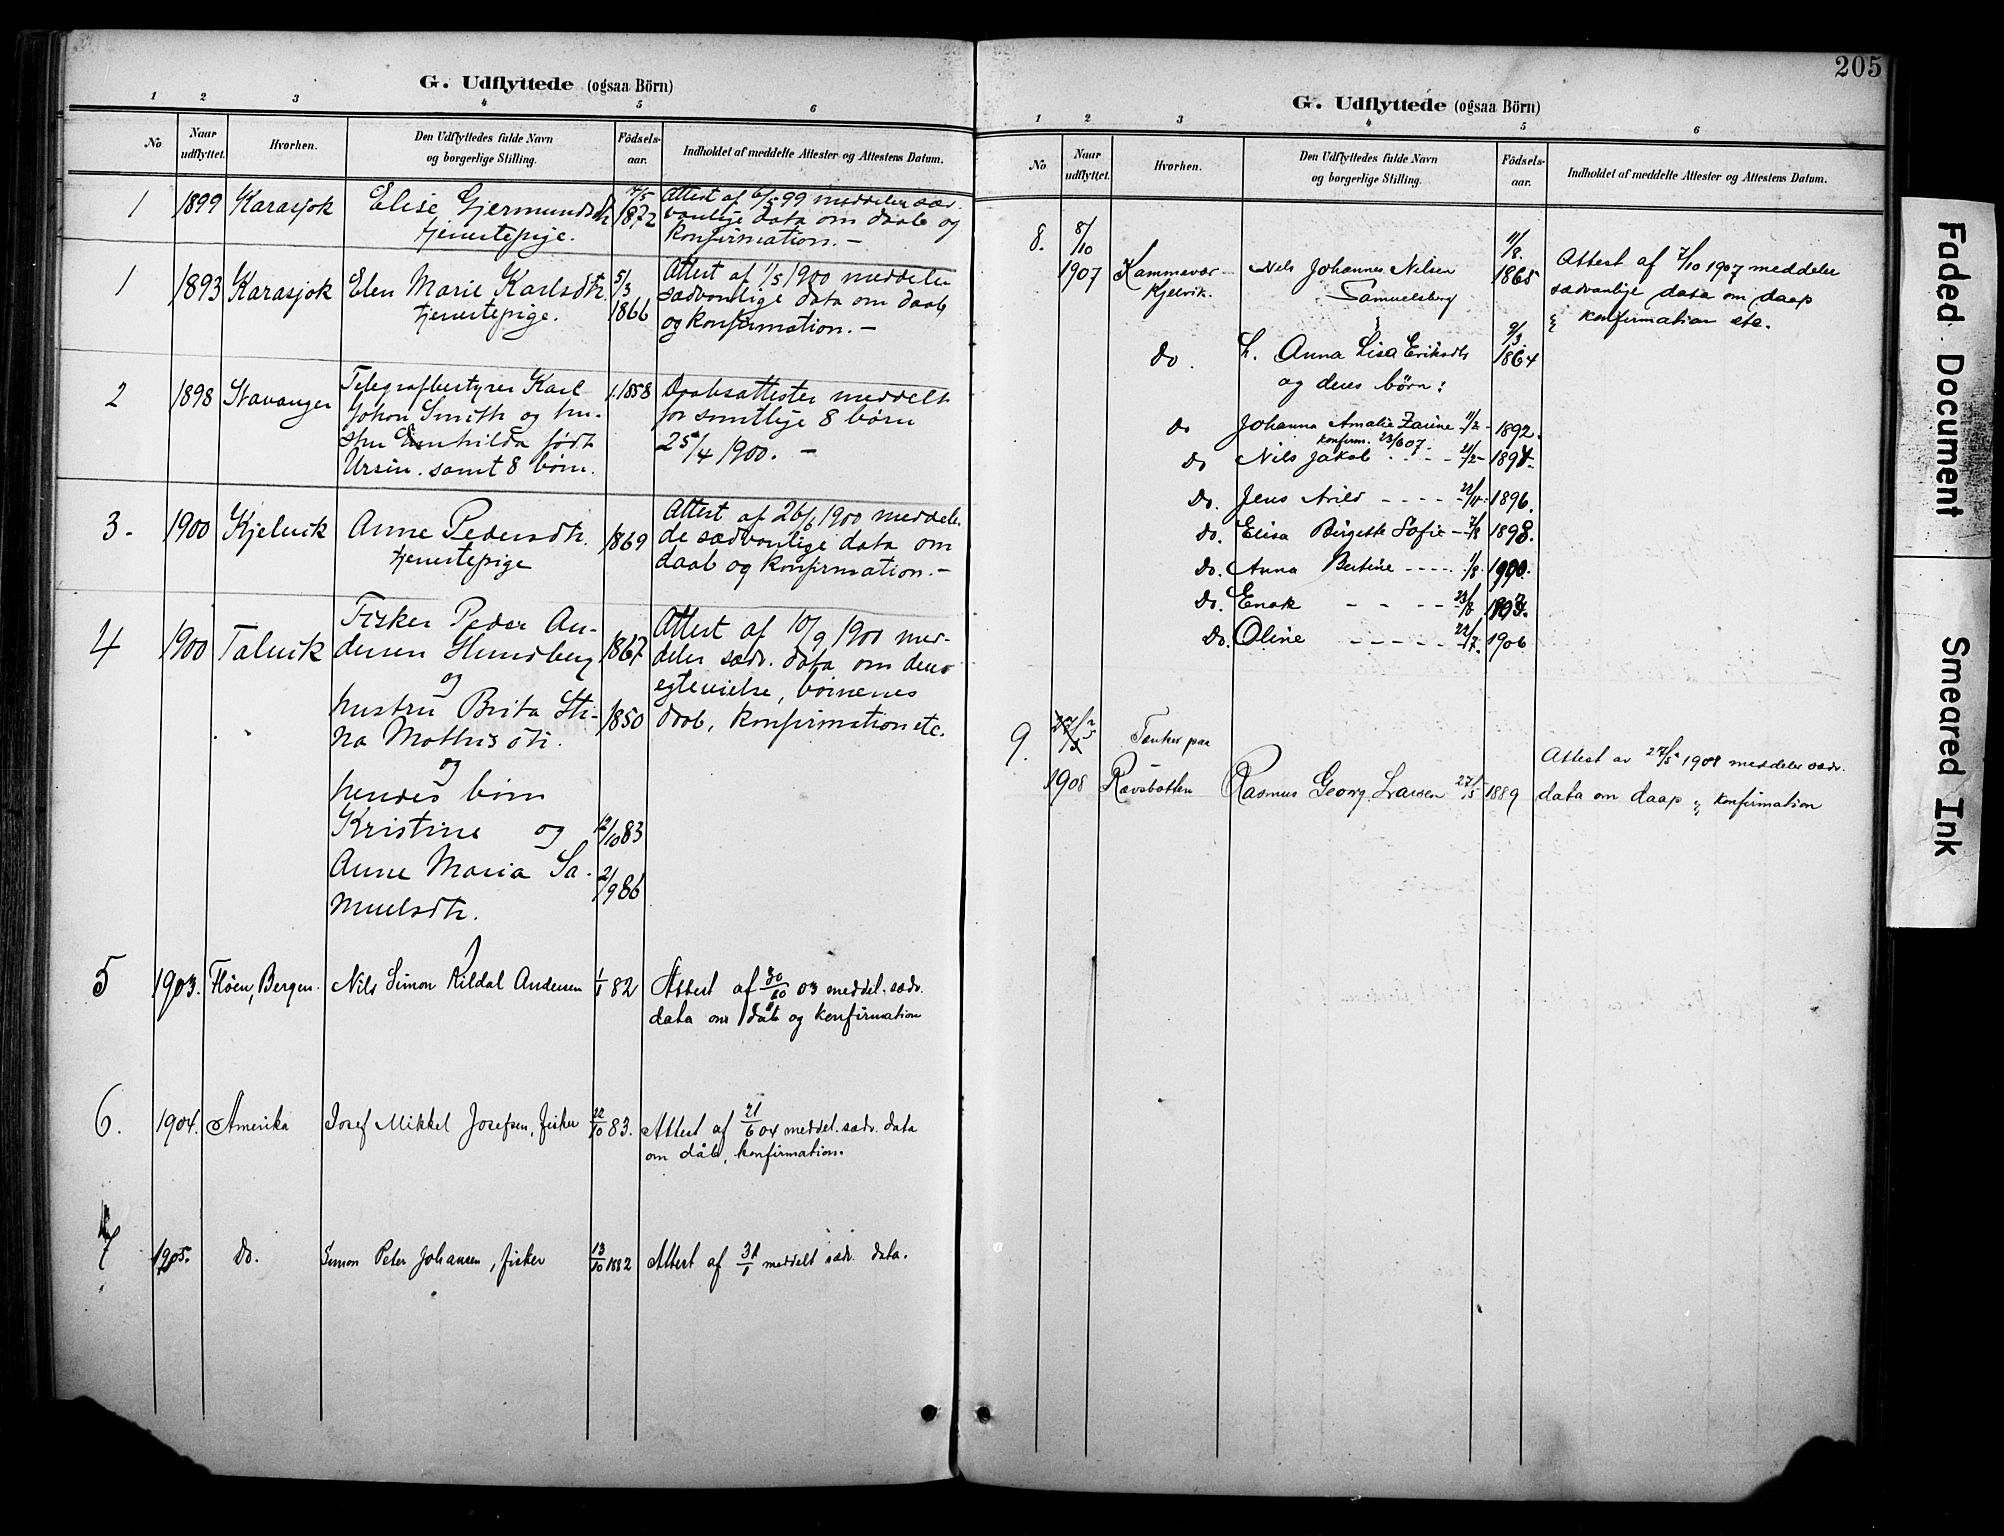 G. Udflyttede (ogsaa Börn)
1 2 3 4 5 6
No
Naar udflyttet.
Hvorhen.
Den Udflyttedes fulde Navn og borgerlige Stilling.
Födsels-aar.
Indholdet af meddelte Attester og Attestens Datum.
1 1899 Karasjok Elise Gjermundsdtr 7/5 1872 Attest af 6/5 99 meddeler sæd-
tjenestepige. vanlige data om daab og
konfirmation. —
1 1893 Karasjok Elen Marie Karlsdtr. 5/3 1866 Attest af 1/5 1900 meddeler
tjenestepige. sædvanlige data om daab
og konfirmation. —
2 1898 Stavanger Telegrafbestyrer Karl 1858 Daabsattester meddelt
Johan Smith og hu- for samtlige 8 børn
stru født 25/4 1900. —
Ursin. samt 8 børn.
3- 1900 Kjelvik Anne Pedersdtr. 1869 Attest af 26/6 1900 meddele-
tjenestepige de sædvanlige data om
daab og konfirmation. —
4 1900 Talvik Fisker Peder An- 1867 Attest af 10/9 1900 med-
dersen Strandberg deler sædv. data om deres
og egtevielse, børnenes
hustru Brita Sti- 1850 daab, konfirmation etc.
na Mathisdtr.
og
hendes børn
Kristine og 12/10 83
Anne Maria Sa- 2/9 86
muelsdtr.
5 1903. Fløen, Bergen. Nils Simon Kildal Andersen 1/1 82 Attest af 30/10 03 meddel. sædv.
data om dåb og konfirmation
6. 1904. Amerika Josef Mikkel Josefsen, fisker 22/10 83. Attest af 21/6 04 meddel. sædv. data
om dåb, konfirmation.
7 1905. Do. Simon Peter Johansen, fisker 13/10 1882 Attest af 31/1 meddelt sædv. data.
205
G. Udflyttede (ogsaa Börn)
1 2 3 4 5 6
No
Naar udflyttet.
Hvorhen.
Den Udflyttedes fulde Navn og borgerlige Stilling.
Födsels-aar.
Indholdet af meddelte Attester og Attestens Datum.
8. 8/10 1907 Kammavær Nils Johannes Nilsen 11/8. 1865 Attest af 7/10 1907 meddeler
Kjelvik. Samuelsberg sædvanlige data om daap
& & konfirmation etc.
Do. H. Anna Lisa Eriksdtr 9/3 1864
og deres børn:
Do Johanna Amalie Zarine 11/2 - 1892.
konfirm. 23/6 07.
Do Nils Jakob - - - - 21/2 - 1894.
Do. Jens Arild - - - - 1896.
Do. Elisa Birgette Sofie - 7/8 1898.
Do. Anna Bertine - - - - 1/8. 1900.
Do. Enok - - - 23/8 1903.
Do. Oline - - - - - 22/7. 1906
9. 27/5 1908 Tanker paa Rasmus Georg Larsen 27/5 1889 Attest av 27/5 1908 meddeler sædv.
Ravsbotten data om daap & konfirmation
Faded Document
Smeared Ink